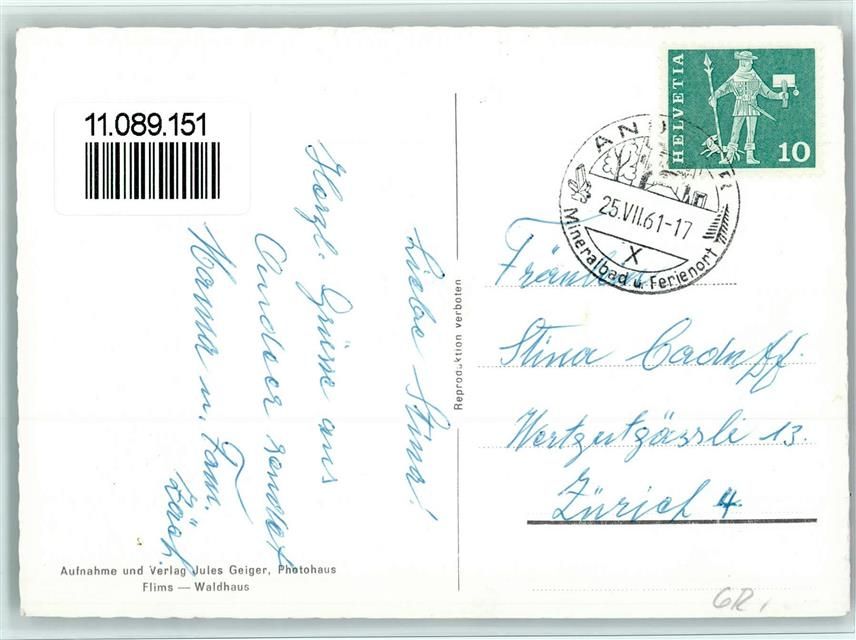 11.089.151
Liebe Stina!
Herzl. Grüsse aus
Andeer sendet
Mama u. Fam.
Zäch.
Aufnahme und Verlag Jules Geiger, Photohaus
Flims — Waldhaus
Reproduktion verboten
HELVETIA
10
AND
25.VII.61-17
X
Mineralbad u. Ferienort
Fräulein
Stina Caduff.
13.
Zürich 4
GR.